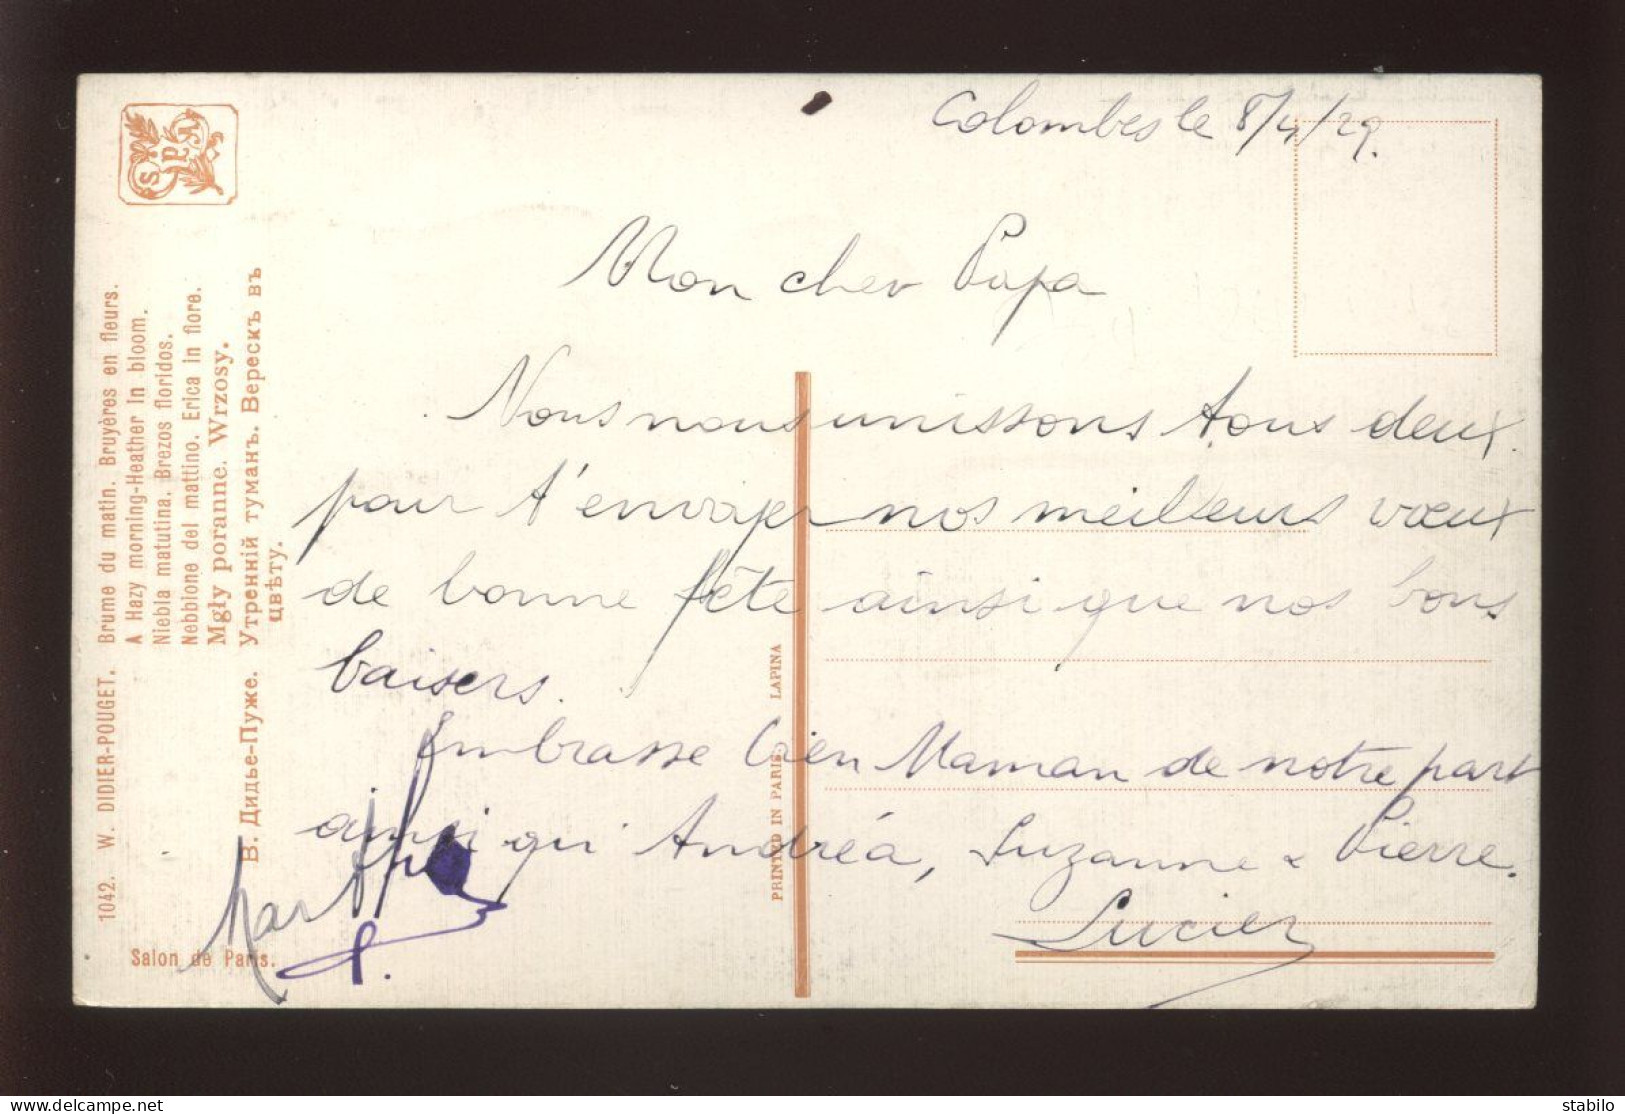 Colombes le 8/4/29.
Mon cher Papa
Nous nous unissons tous deux
pour t'envoyer nos meilleurs vœux
de bonne fête ainsi que nos bons
baisers.
Embrasse bien Maman de notre part
ainsi qui Andréa, Suzanne & Pierre.
Marthe
Lucien
SPA
1042. W. DIDIER-POUGET. Brume du matin. Bruyères en fleurs.
A Hazy morning-Heather in bloom.
Niebla matutina. Brezos floridos.
Nebbione del mattino. Erica in flore.
Mgły poranne. Wrzosy.
В. Дидье-Пуже. Утренній туманъ. Верескъ въ
цвѣту.
Salon de Paris.
PRINTED IN PARIS LAPINA
stabilo